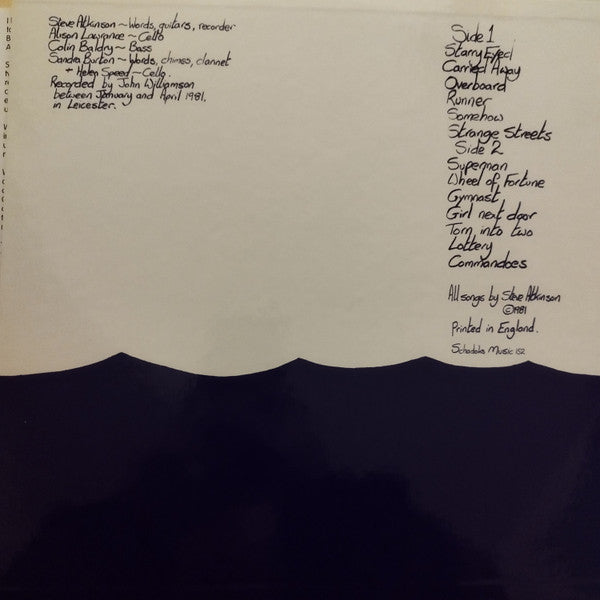 Steve Atkinson ~ Words, guitars, recorder
Alison Lawrance ~ Cello
Colin Baldry ~ Bass
Sandra Burton ~ Words, chimes, clarinet
+ Helen Speed ~ Cello.
Recorded by John Williamson
between January and April 1981,
in Leicester.
Side 1
Starry Eyed
Carried Away
Overboard
Runner
Somehow
Strange Streets
Side 2
Superman
Wheel of Fortune
Gymnast
Girl next door
Torn into two
Lottery
Commandoes
All songs by Steve Atkinson
©1981
Printed in England.
Music 152